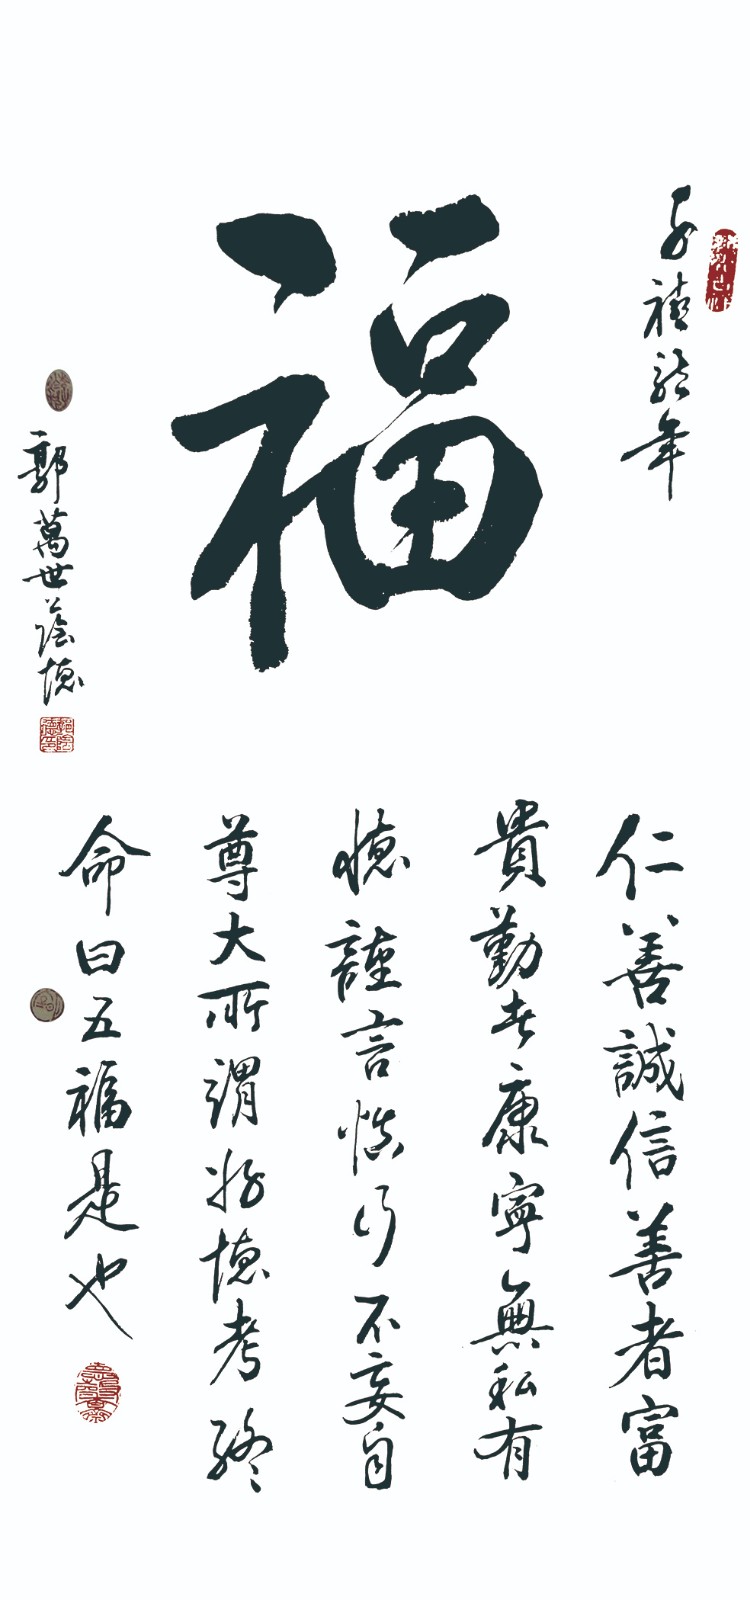 禧龍年
福
郭萬世蔭德
仁善誠信善者富
貴勤者康寧無私有
德謹言慎行不妄自
尊大所謂好德考終
命曰五福是也